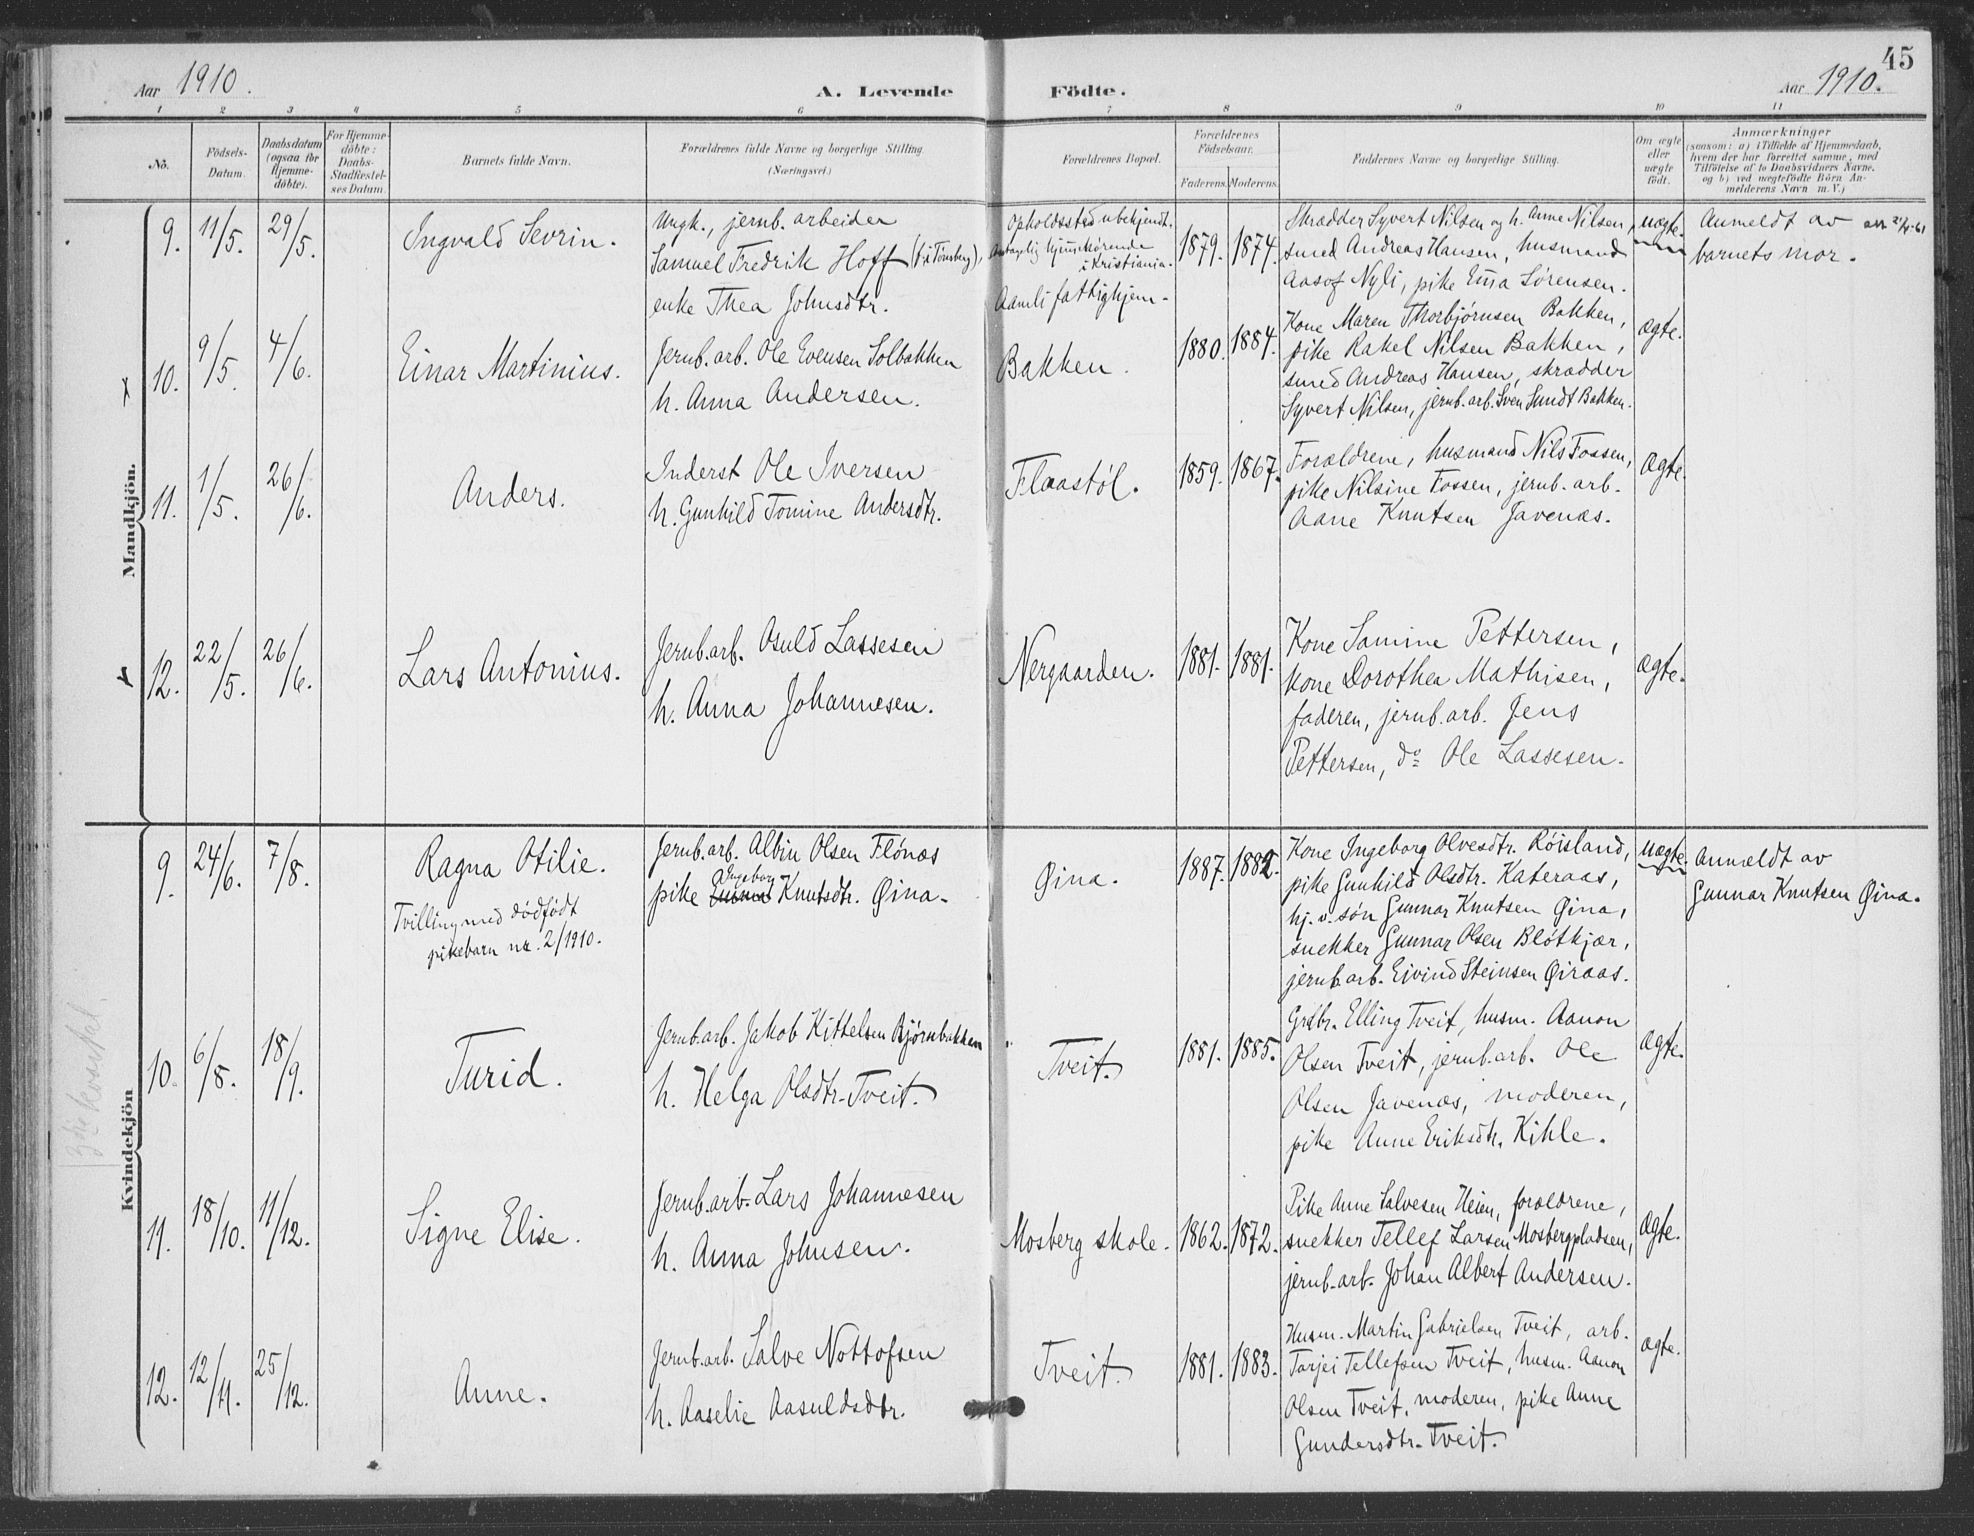 45
Aar 1910.
A. Levende Födte.
Aar 1910.
1 2 3 4 5 6 7 8 9 10 11
No.
Födsels-Datum.
Daabsdatum (ogsaa for Hjemme-döbte).
For Hjemme-döbte: Daabs-Stadfæstel-ses Datum.
Barnets fulde Navn.
Forældrenes fulde Navne og borgerlige Stilling. (Næringsvei.)
Forældrenes Bopæl.
Forældrenes Födselsaar.
Faderens. Moderens.
Faddernes Navne og borgerlige Stilling.
Om ægte eller uægte födt.
Anmærkninger
(saasom: a) i Tilfælde af Hjemmedaab, hvem der har forrettet samme, med Tilföielse af to Daabsvidners Navne, og b) ved uægtefödte Börn An-melderens Navn m. V.)
Mandkjön.
9. 11/5. 29/5.
Ingvald Sevrin.
Ungk., jernb. arbeider
Samuel Fredrik Hoff (f. i Tönsberg),
enke Thea Johnsdtr.
Opholdssted ubekjendt.
Antagelig hjemmehörende
i Kristiania.
Aamli fattighjem.
1879. 1874.
Skrædder Syvert Nilsen og h. Anne Nilsen,
smed Andreas Hansen, husmand
Aasof Nyli, pike Ema Sørensen.
uægte.
Anmeldt av
barnets mor.
10. 9/5. 4/6.
Einar Martinius.
Jernb. arb. Ole Evensen Solbakken
h. Anna Andersen.
Bakken.
1880. 1884.
Kone Maren Thorbjørnsen Bakken,
pike Rakel Nilsen Bakken,
smed Andreas Hansen, skrædder
Syvert Nilsen, jernb. arb. Sven Sundt Bakken.
ægte.
11. 1/5. 26/6.
Anders.
Inderst Ole Iversen
h. Gunhild Tomine Andersdtr.
Flaastöl.
1859. 1867.
Forældrene, husmand Nils Fossen,
pike Nilsine Fossen, jernb. arb.
Aane Knutsen Javenæs.
ægte.
12. 22/5. 26/6.
Lars Antonius.
Jernb. arb. Osuld Lassesen
h. Anna Johannesen.
Nergaarden.
1881. 1881.
Kone Samine Pettersen,
kone Dorothea Mathisen,
faderen, jernb. arb. Jens
Pettersen, do Ole Lassesen.
ægte.
Kvindekjön
9. 24/6. 7/8.
Ragna Otilie.
Tvilling med dödfödt
pikebarn nr. 2/1910.
Jernb. arb. Albin Olsen Flönæs
Ingeborg
pike Knutsdtr. Øina.
Øina.
1887. 1882.
Kone Ingeborg Olvesdtr. Röisland,
pike Gunhild Olsdtr. Kateraas,
hj. v. søn Gunnar Knutsen Øina,
snekker Gunnar Olsen Blötkjær,
jernb. arb. Eivind Steinsen Øiraas.
uægte.
Anmældt av
Gunnar Knutsen Øina.
10. 6/8. 18/9.
Turid.
Jernb. arb. Jakob Kittelsen Bjørnbakken
h. Helga Olsdtr. Tveit.
Tveit.
1881. 1885.
Grdbr. Elling Tveit, husm. Aanon
Olsen Tveit, jernb. arb. Ole
Olsen Javenæs, moderen,
pike Anne Eriksdtr. Kihle.
ægte.
11. 18/10. 11/12.
Signe Elise.
Jernb. arb. Lars Johannesen
h. Anna Johnsen.
Mosberg skole.
1862. 1872.
Pike Anne Salvesen Heien, forældrene,
snekker Tellef Larsen Mosbergpladsen,
jernb. arb. Johan Albert Andersen.
ægte.
12. 12/11. 25/12.
Anne.
Jernb. arb. Salve Nottofsen
h. Aaselie Aasuldsdtr.
Tveit.
1881. 1883.
Husm. Martin Gabrielsen Tveit, arb.
Tarjei Tellefsen Tveit, husm. Aanon
Olsen Tveit, moderen, pike Anne
Gundersdtr. Tveit.
ægte.